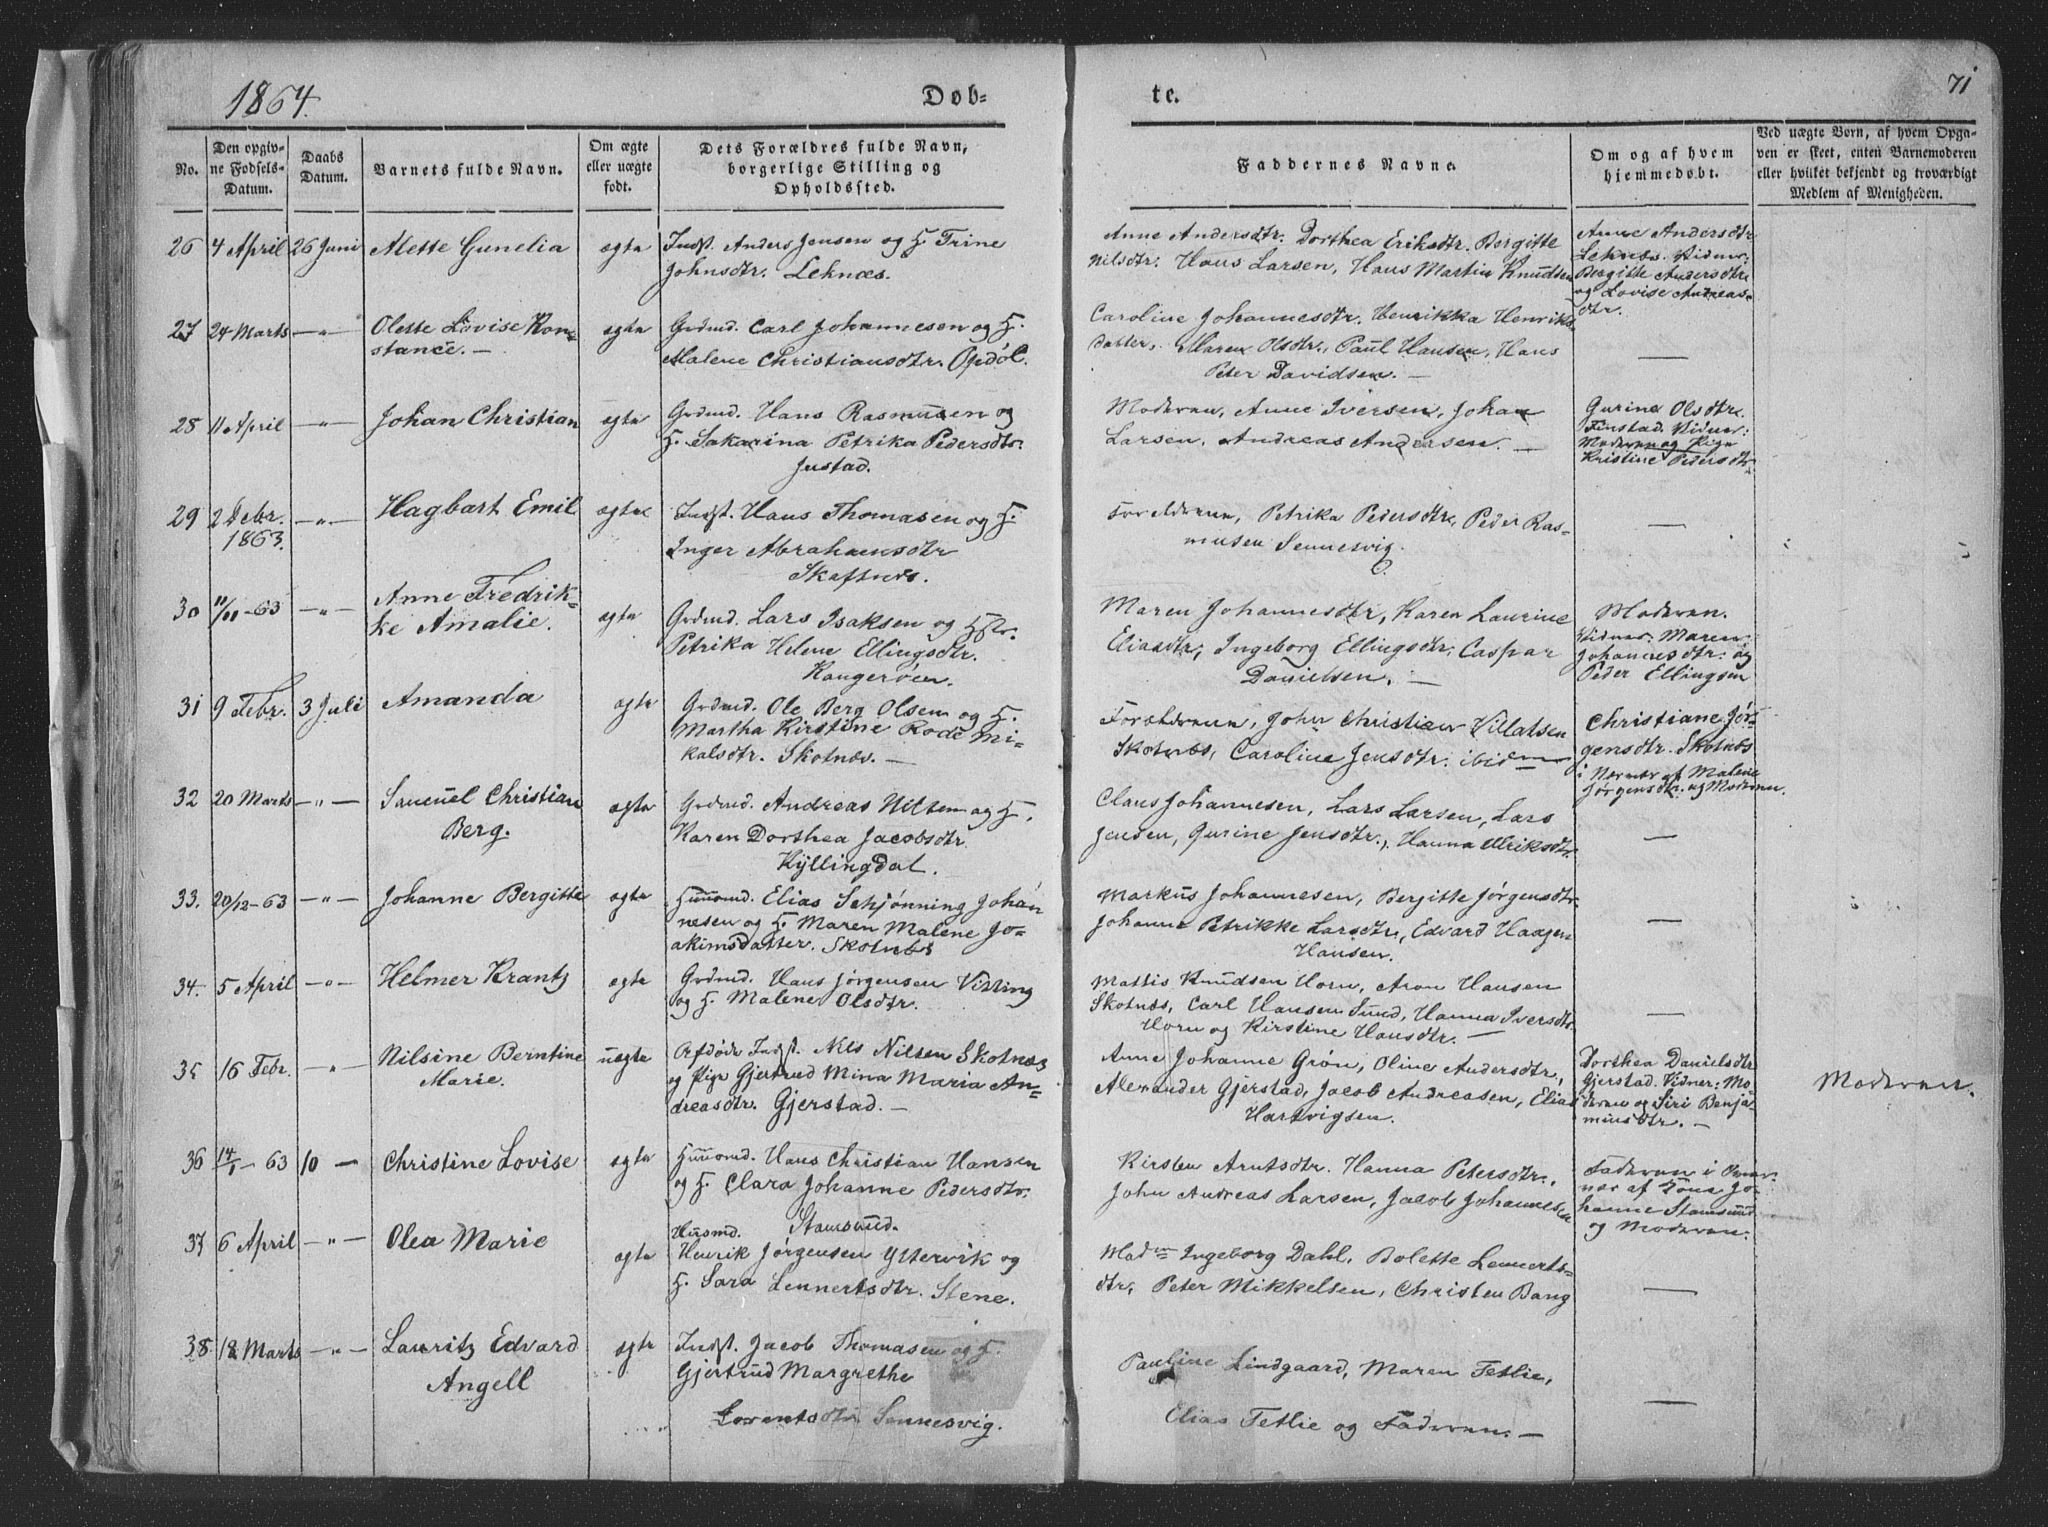 1864.
Døb-
te.
71
No.
Den opgiv-
ne Fødsels-
Datum.
Daabs
Datum.
Barnets fulde Navn.
Om ægte
eller uægte
født.
Dets Forældres fulde Navn,
borgerlige Stilling og
Opholdssted.
Faddernes Navne.
Om og af hvem
hjemmedøbt.
Ved uægte Børn, af hvem Opga-
ven er skeet, enten Barnemoderen
eller hvilket bekjendt og troværdigt
Medlem af Menigheden.
26 4 April 26 Juni Alette Gunelia ægte Indst. Anders Jensen og H. Trine
Johnsdtr. Leknæs.
Anne Andersdtr. Dorthea Eriksdtr. Bergitte
Nilsdtr. Hans Larsen, Hans Martin Knudsen
Anne Andersdtr
Leknæs. Vidner:
Bergitte Andersdtr
og Lovise Andreas-
dtr.
27 24 Marts —"— Olette Lovise Kon-
stance. —
ægte Grdmd. Carl Johannesen og H.
Malene Christiansdtr. Opdøl.
Caroline Johannesdtr. Henrikka Henriks-
datter, Maren Olsdtr., Paul Hansen, Hans
Peter Davidsen. —
—
28 11 April —"— Johan Christian ægte Grdmd. Hans Rasmusen og
H. Sakarina Petrika Pedersdtr.
Justad.
Moderen, Anne Iversen, Johan
Larsen, Andreas Andersen. —
Gurine Olsdtr.
Finstad. Vidner:
Moderen og Pige
Kristine Pedersdtr.
29 2 Febr.
1863.
—"— Hagbart Emil ægte Indst. Hans Thomasen og H.
Inger Abrahamsdtr
Skaftnes.
Forældrene, Petrika Pedersdtr, Peder Ras-
musen Sennesvig.
—
30 11/11-63 —"— Anne Fredrik-
ke Amalie.
ægte Grdmd. Lars Isaksen og Hstr.
Petrika Helene Ellingsdtr.
Haugerøen.
Maren Johannesdtr, Karen Laurine
Eliasdtr, Ingeborg Ellingsdtr, Caspar
Danielsen. —
Moderen.
Vidner: Maren
Johannesdtr: og
Peder Ellingsen
31 9 Febr. 3 Juli Amanda ægte Grdmd. Ole Berg Olsen og H.
Martha Kirstine Rode Mi-
kalsdtr. Skotnæs. —
Forældrene, John Christian Villatsen
Skotnæs, Caroline Jensdtr. ibidm
Christiane Jør-
gensdtr. Skotnæs
i Nærvær af Malene
Jørgensdtr. og Moderen.
32 20 Marts —"— Samuel Christian
Berg.
ægte Grdmd. Andreas Nilsen og H.
Karen Dorthea Jacobsdtr.
Kyllingdal.
Claus Johannesen, Lars Larsen, Lars
Jensen, Gurine Jensdtr., Hanna Ulriksdtr.
—
33. 20/12-63 —"— Johanne Bergitte ægte Huusmd. Elias Schjønning Johan-
nesen og H. Maren Malene Jo-
akimsdatter. Skotnæs
Markus Johannesen, Bergitte Jørgensdtr.
Johanna Petrikke Larsdtr, Edvard Haagen
Hansen.
—
34. 5 April —"— Helmer Krantz ægte Grdmd. Hans Jørgensen Vetting
og H. Malene Olsdtr.
Mattis Knudsen Horn, Aron Hansen
Skotnæs, Carl Hansen Sund, Hanna Iversdtr.
Horn og Kirstine Hansdtr. —
—
35 16 Febr. —"— Nilsine Berntine
Marie.
uægte Afdøde Indst. Nils Nilsen Skotnæs
og Pige Gjertrud Mina Maria An-
dreasdtr. Gjerstad. —
Anne Johanne Grøn, Oline Andersdtr,
Alexander Gjerstad, Jacob Andreasen, Elias
Hartvigsen.
Dorthea Danielsdtr
Gjerstad. Vidner: Mo-
deren og Siri Benja-
minsdtr. —
Moderen.
36 14/1-63 10 — Christine Lovise ægte Huusmd. Hans Christian Hansen
og H. Clara Johanne Pedersdtr.
Stamsund.
Kirsten Arntsdtr. Hanna Petersdtr.,
John Andreas Larsen, Jacob Johannesen
Faderen i Nær-
vær af Jo-
hanne Stamsund
og Moderen.
37 6 April —"— Olea Marie ægte Husmd.
Henrik Jørgensen Yttervik og
H. Sara Lennertsdtr. Stene.
Madm Ingeborg Dahl, Bolette Lennerts-
dtr, Peter Mikkelsen, Christen Bang
—
38. 18 Marts —"— Lauritz Edvard
Angell
ægte Indst. Jacob Thomasen og H.
Gjertrud Margrethe
Lorentsdtr Sennesvig.
Pauline Lindgaard, Maren Fetlie,
Elias Fetlie og Faderen. —
—